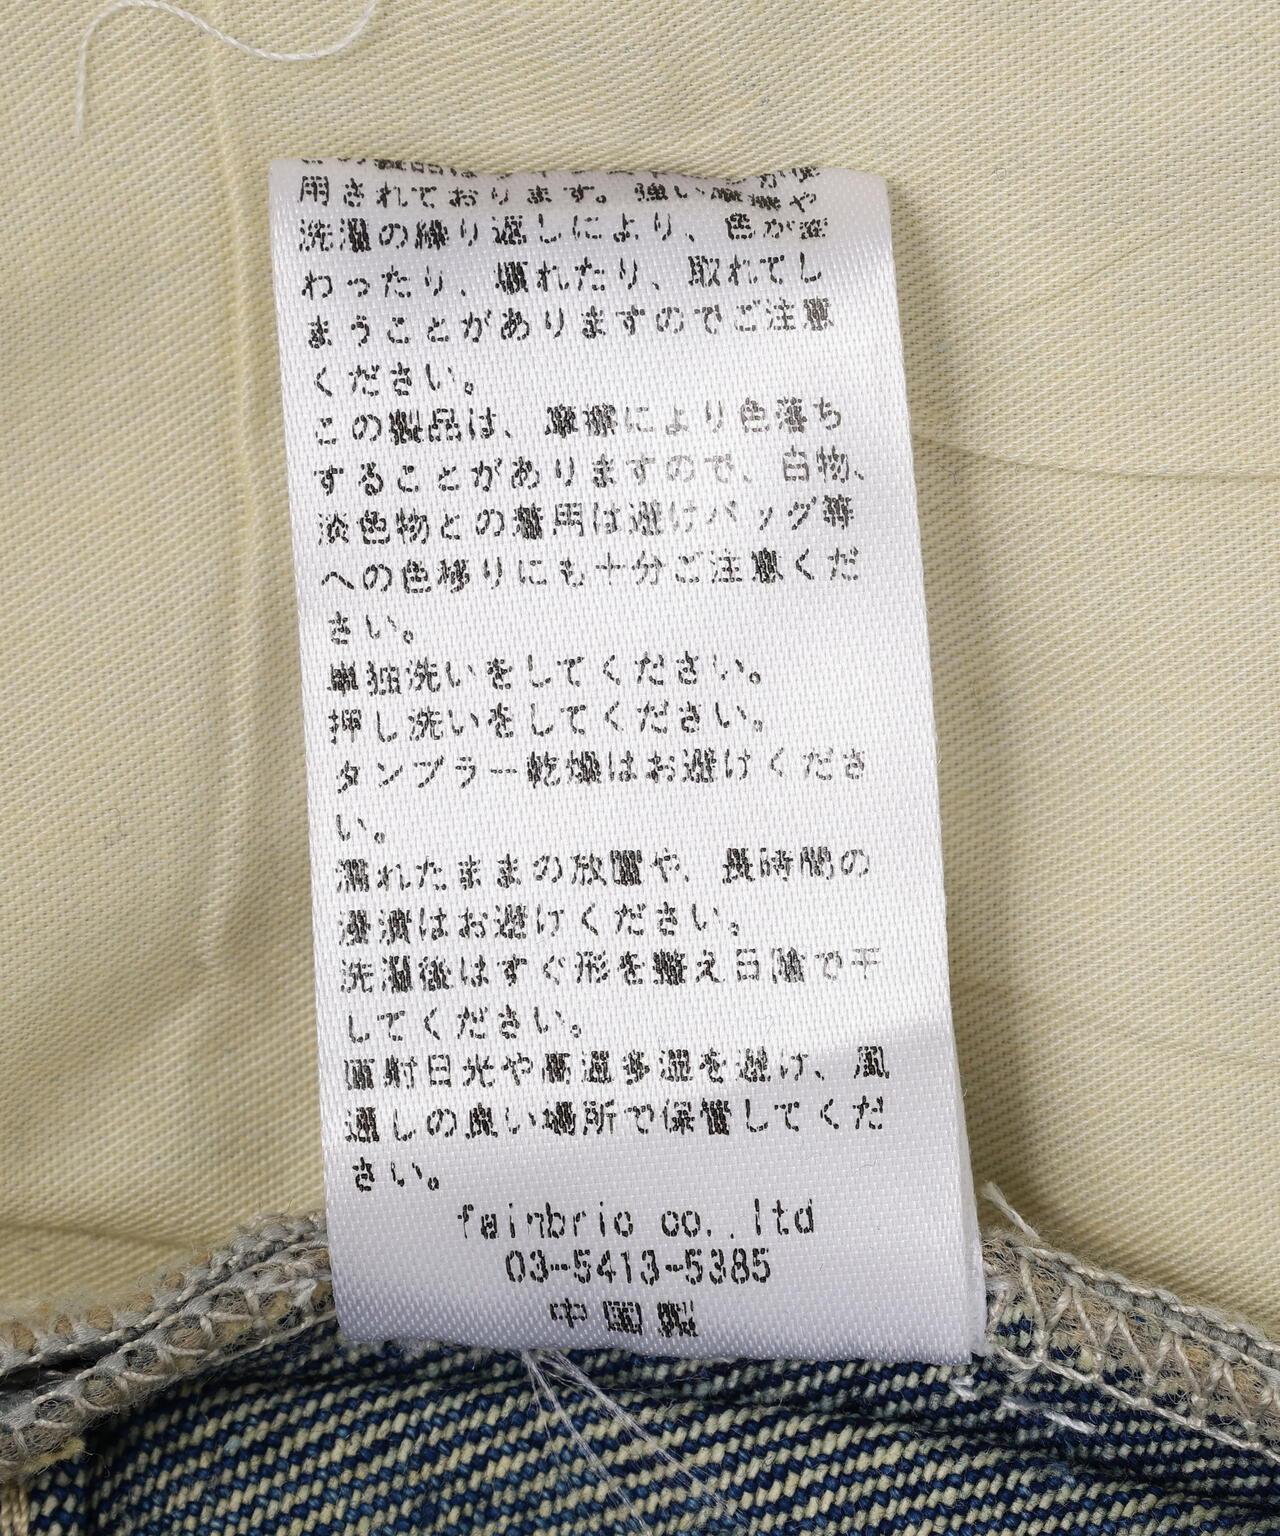 用されております。強い摩擦や
洗濯の繰り返しにより、色が変
わったり、壊れたり、取れてし
まうことがありますのでご注意
ください。
この製品は、摩擦により色落ち
することがありますので、白物、
淡色物との着用は避けバッグ等
への色移りにも十分ご注意くだ
さい。
単独洗いをしてください。
押し洗いをしてください。
タンブラー乾燥はお避けくださ
い。
濡れたままの放置や、長時間の
浸漬はお避けください。
洗濯後はすぐ形を整え日陰で干
してください。
直射日光や高温多湿を避け、風
通しの良い場所で保管してくだ
さい。
fainbric co.,ltd
03-5413-5385
中国製